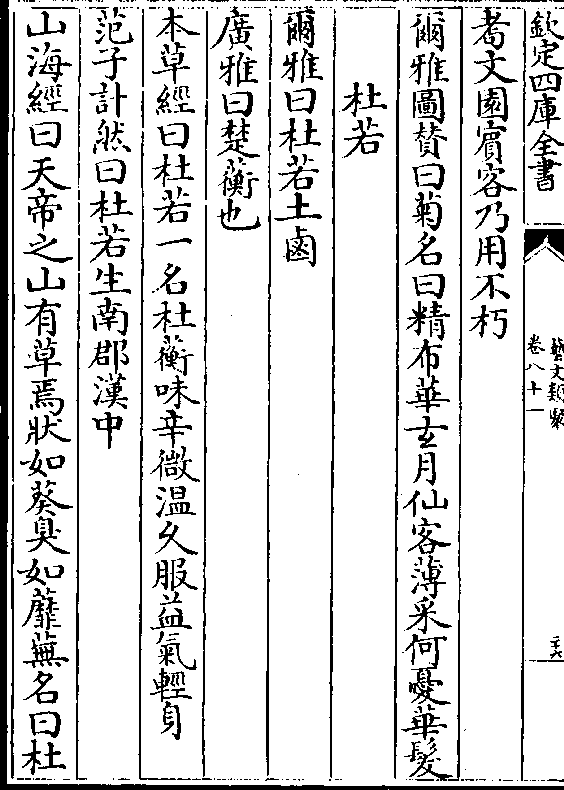 欽定四庫全書
藝文類聚
卷八十一
二十六
耇文園賓客乃用不朽
爾雅圖賛曰菊名曰精布華玄月仙客薄采何憂華髮
杜若
爾雅曰杜若土鹵
廣雅曰楚蘅也
本草經曰杜若一名杜蘅味辛微温久服益氣輕身
范子計然曰杜若生南郡漢中
山海經曰天帝之山有草焉狀如葵臭如蘼蕪名曰杜